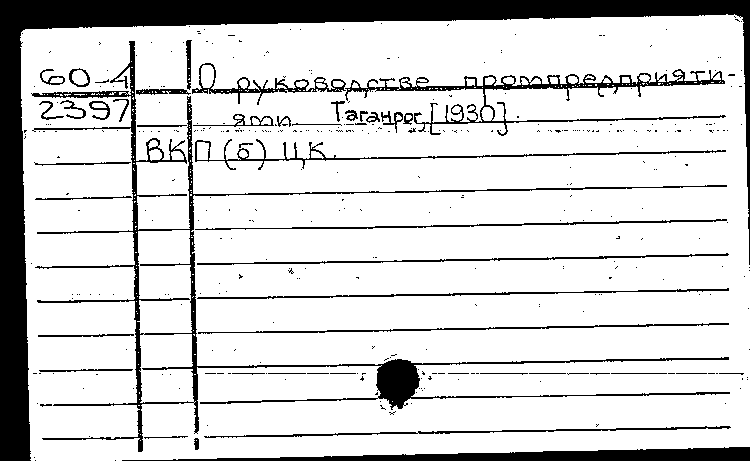 60-4 О руководстве промпредприяти-
2397 ями. Таганрог, [1930].
ВКП(б) ЦК.